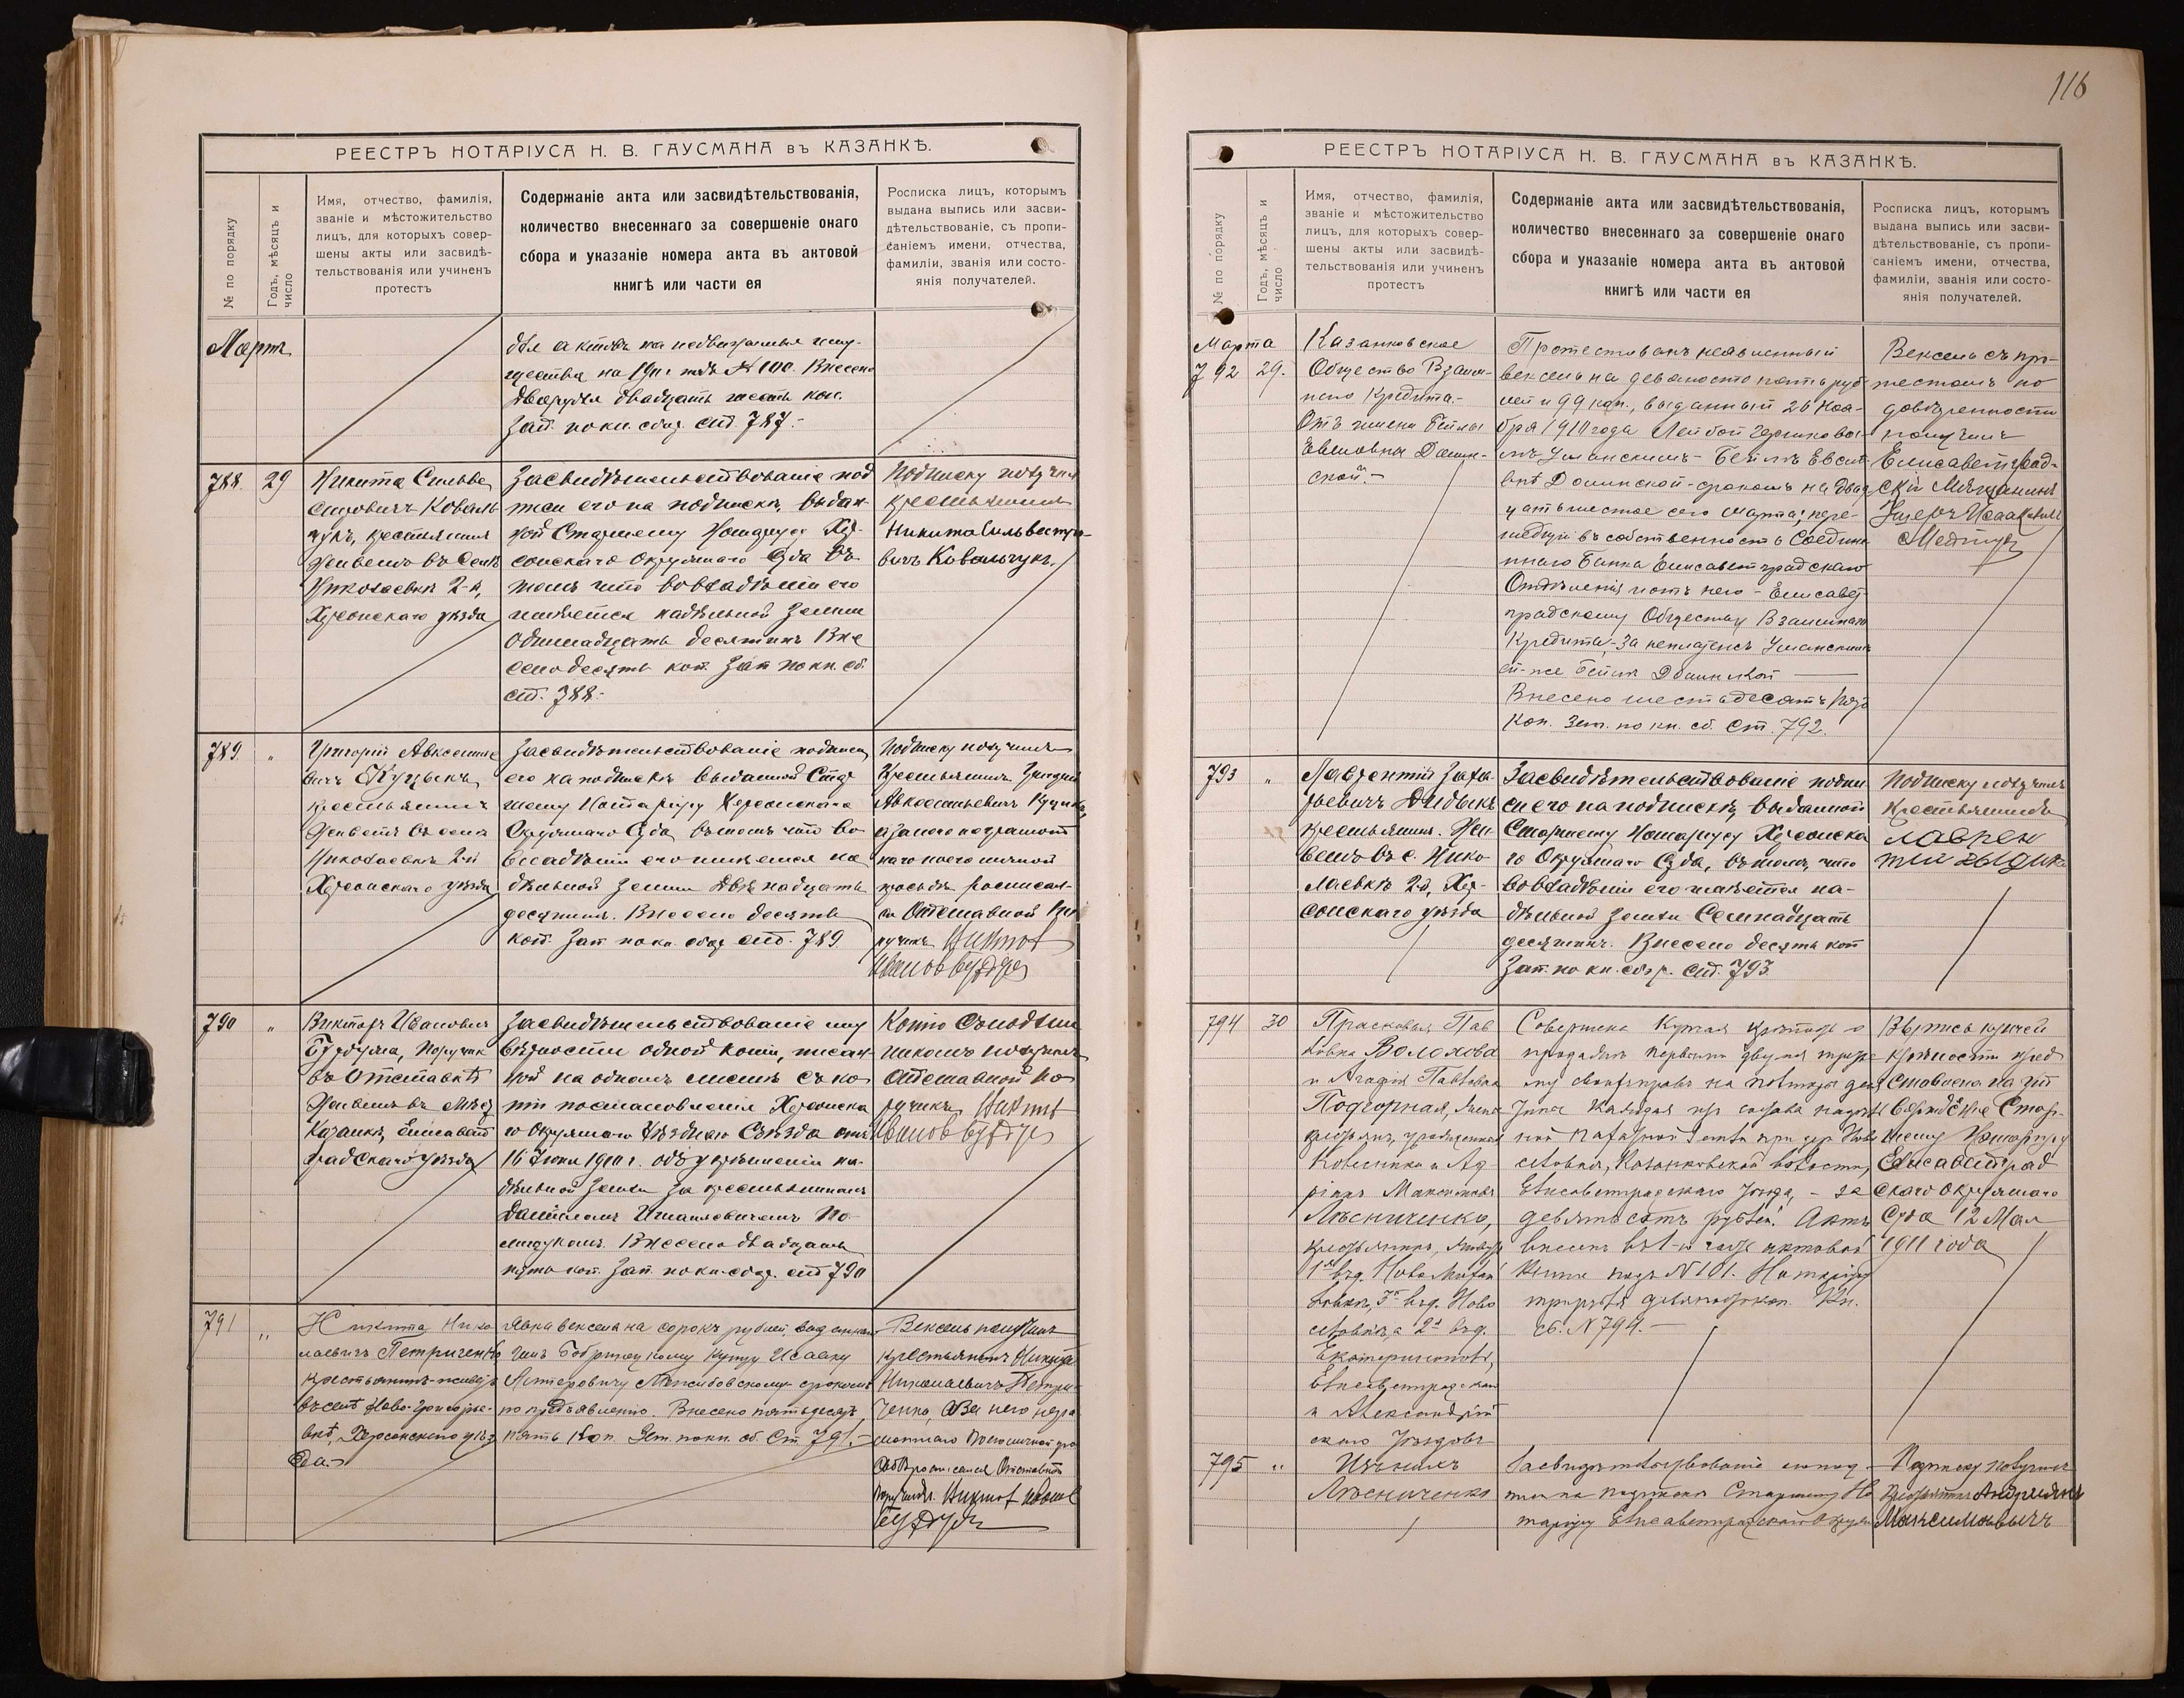 РЕЕСТРЪ НОТАРІУСА Н. В. ГАУСМАНА въ КАЗАНКѢ.
№ по порядку
Годъ, мѣсяцъ и число
Имя, отчество, фамилія,
званіе и мѣстожительство
лицъ, для которыхъ совер-
шены акты или засвидѣ-
тельствованія или учиненъ
протестъ
Содержаніе акта или засвидѣтельствованія,
количество внесеннаго за совершеніе онаго
сбора и указаніе номера акта въ актовой
книгѣ или части ея
Росписка лицъ, которымъ
выдана выпись или засви-
дѣтельствованіе, съ пропи-
саніемъ имени, отчества,
фамиліи, званія или состо-
янія получателей.
Мартъ
для актовъ на недвижимыя иму-
щества на 1911 годъ № 100. Внесено
два рубля двадцать шесть коп.
Зап. по кн. сбор. ст. 787.-
788. 29
Никита Сильве
стровичъ Коваль
чукъ, крестьянинъ
Живетъ въ селѣ
Николаевкѣ 2-й,
Херсонскаго уѣзда
Засвидѣтельствованіе под
писи его на подпискѣ, выдан
ной Старшему Нотаріусу Хер-
сонскаго Окружнаго Суда въ
томъ что во владѣніи его
имѣется надѣльной земли
одиннадцать десятинъ Вне
сено десять коп. Зап по кн. сб.
ст. 788.-
Подписку получилъ
крестьянинъ
Никита Сильвестро-
вичъ Ковальчукъ.
789. "
Григорій Авксентье
вичъ Куцыкъ,
крестьянинъ
Живетъ въ селѣ
Николаевкѣ 2-й
Херсонскаго уѣзда
Засвидѣтельствованіе подписи
его на подпискѣ выданной Стар
шему Нотаріусу Херсонскаго
Окружнаго Суда, въ томъ что во
владѣніи его имѣется на
дѣльной земли двѣнадцать
десятинъ. Внесено десять
коп. Зап по кн. сбор. ст. 789.
Подписку получилъ
Крестьянинъ Григорій
Авксентьевичъ Куцыкъ,
а за него неграмот
наго по его личной
просьбѣ росписал-
ся Отставной По
ручикъ Виктор
Иванов
790 "
Викторъ Ивановичъ
Поручик
въ Отставкѣ
Живетъ въ мѣст
Казанкѣ, Елисавет
градскаго уѣзда
Засвидѣтельствованіе имъ
вѣрности одной копіи, писан-
ной на одномъ листѣ съ ко
піи постановленія Херсонска
го Окружнаго Уѣзднаго Съѣзда отъ
16 Іюня 1910 г. объ укрѣпленіи на-
дѣльной земли за крестьяниномъ
Внесено двадцать
коп. Зап. по кн. сбор. ст 790
Копію съ подлин
никомъ получилъ
Отставной По
ручикъ Виктор
Иванов
791 "
Никита Нико
лаевичъ Петриченко
крестьянинъ-живетъ
въ селѣ Ново-Григорье-
вкѣ, Херсонскаго уѣз
да.-
Явка векселя на сорокъ рублей, выданнаго
имъ Бобринецкому Купцу Исааку
срокомъ
по предъявленію. Внесено пятьдесятъ
пять коп. Зап. по кн. сб. Ст. 791.-
Вексель получилъ
крестьянинъ Никита
Николаевичъ Петри-
ченко, а за него негра
мотнаго по его личной про
сьбѣ росписался Отставной
Поручикъ Виктор Иванов
116
РЕЕСТРЪ НОТАРІУСА Н. В. ГАУСМАНА въ КАЗАНКѢ.
№ по порядку
Годъ, мѣсяцъ и число
Имя, отчество, фамилія,
званіе и мѣстожительство
лицъ, для которыхъ совер-
шены акты или засвидѣ-
тельствованія или учиненъ
протестъ
Содержаніе акта или засвидѣтельствованія,
количество внесеннаго за совершеніе онаго
сбора и указаніе номера акта въ актовой
книгѣ или части ея
Росписка лицъ, которымъ
выдана выпись или засви-
дѣтельствованіе, съ пропи-
саніемъ имени, отчества,
фамиліи, званія или состо-
янія получателей.
Марта
792 29.
Казанковское
Общество Взаим-
наго Кредита.-
Отъ имени Бейлы
Евсеовны Долин-
ской.-
Протестованъ неявленный
вексель на девяносто пять руб-
лей и 99 коп., выданный 26 Ноя-
бря 1910 года Лейбой
Уманскимъ - Бейлѣ Евсео-
внѣ Долинской - срокомъ на двад
цать шестое сего марта; пере-
шедшій въ собственность Соедине
ннаго Банка Елисаветградскаго
Отдѣленія и отъ него - Елисавет-
градскому Обществу Взаимнаго
Кредита,- за неплатежъ Уманскимъ
ей-же Бейлѣ Долинской
Внесено шестьдесятъ
коп. Зап. по кн. сб. Ст. 792.
Вексель съ про-
тестомъ по
довѣренности
получилъ
Елисаветград-
скій Мѣщанинъ
Исааковичъ
793 "
Лаврентій Заха
рьевичъ Дидыкъ
крестьянинъ. Жи
ветъ въ с. Нико
лаевкѣ 2-й, Хер-
сонскаго уѣзда
Засвидѣтельствованіе подпи
си его на подпискѣ, выданной
Старшему Нотаріусу Херсонска
го Окружнаго Суда, въ томъ, что
во владѣніи его имѣется на-
дѣльной земли семнадцать
десятинъ. Внесено десять коп
Зап. по кн. сбор. ст. 793.
Подписку получилъ
Крестьянинъ
Лаврен
тий Дыдик
794 30
Прасковья Пав
ловна Волохова
и Агафія Павловна
Подгорная,
крестьянки, урожденныя
и Ад-
ріанъ Максимовъ
Лѣсниченко,
крестьянинъ, живутъ
1я въ д. Новомихай
ловкѣ, 3й въ д. Ново
селовкѣ, а 2я въ д.
Елисаветградскаго
и Александрій
скаго Уѣздовъ
Совершена Купчая крѣпость о
продажѣ первыми двумя третье
му
ной земли при дер. Ново
селовкѣ, Казанковской волости,
Елисаветградскаго уѣзда, - за
девятьсотъ рублей. Актъ
внесенъ въ 1-ю часть актовой
книги подъ № 101. Нотаріусу
три рубля коп. Кн.
сб. № 794.-
Выпись купчей
крѣпости пред
ставлена на ут
вержденіе Стар-
шему Нотаріусу
Елисаветград
скаго Окружнаго
Суда 12 Мая
1911 года
795 "
Лѣсниченко
Засвидѣтельствованіе его под-
писи на подпискѣ Старшему Но
таріусу Елисаветградскаго Окружн
Подписку получилъ
Крестьянинъ Андриянъ
Максимовычъ